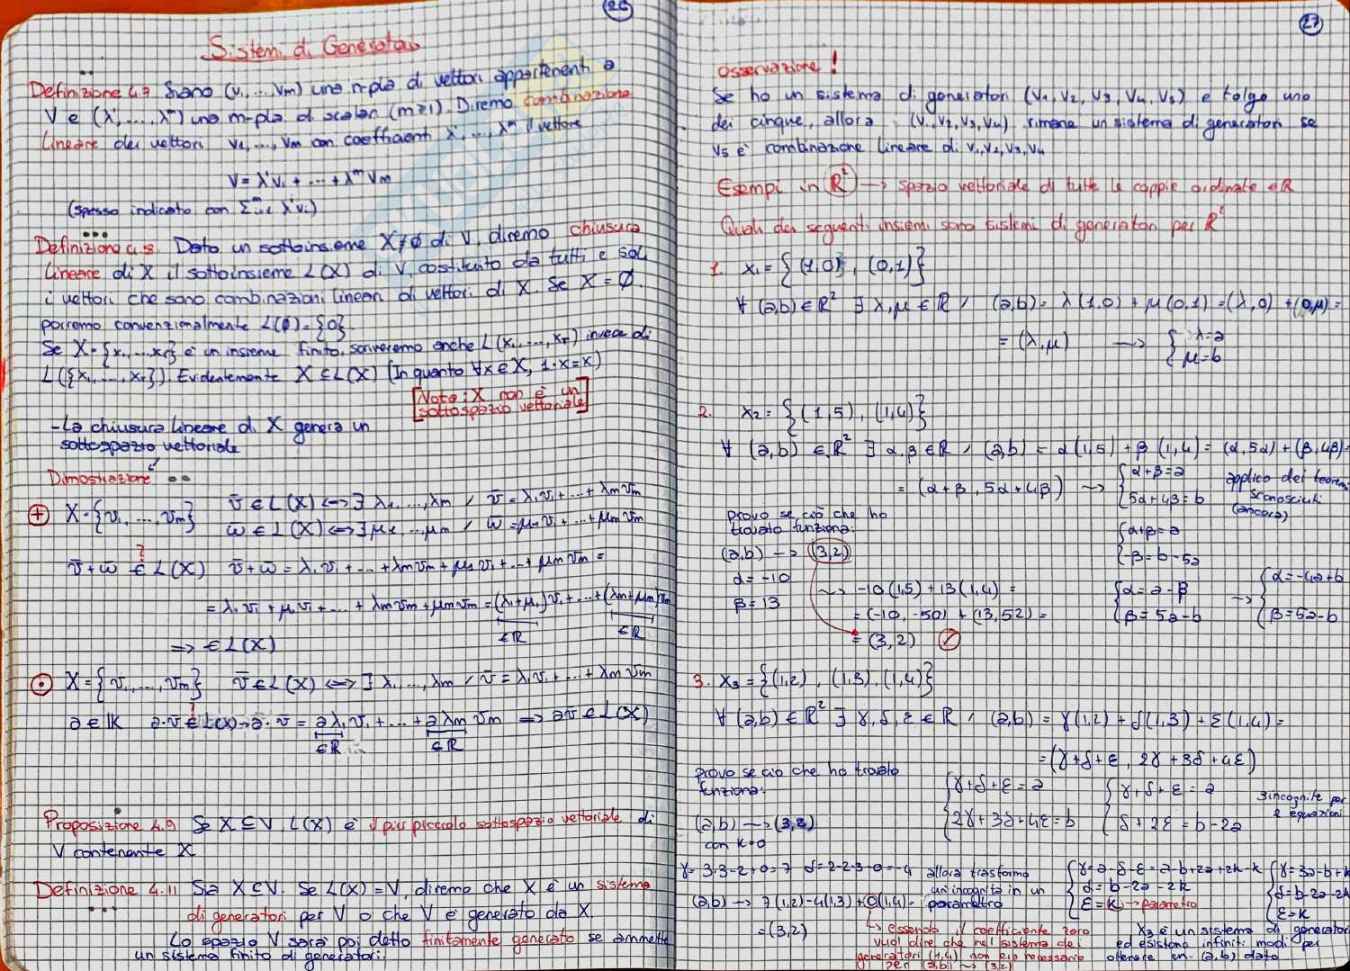 26
Sistemi di Generatori
Definizione 4.7 Siano (v₁,...,vm) una n-pla di vettori appartenenti a
V e (λ¹,...,λᵐ) una m-pla di scalari (m≥1). Diremo combinazione
lineare dei vettori v₁,...,vm con coefficienti λ¹,...,λᵐ il vettore
v = λ¹v₁ + ... + λᵐvm
(spesso indicato con Σᵐᵢ₌₁ λⁱvᵢ)
Definizione 4.8 Dato un sottoinsieme X≠∅ di V, diremo chiusura
lineare di X il sottoinsieme L(X) di V, costituito da tutti e soli
i vettori che sono combinazioni lineari di vettori di X. Se X = ∅.
porremo convenzionalmente L(∅)={0}.
Se X={x₁,...,xr} è un insieme finito, scriveremo anche L(x₁,...,xr) invece di
L({x₁,...,xr}). Evidentemente X⊆L(X) (In quanto ∀x∈X, 1·x=x)
[Nota: X non è un
sottospazio vettoriale]
-La chiusura lineare di X genera un
sottospazio vettoriale
Dimostrazione
⊕ X={v₁,...,vm} v̄ ∈ L(X) ⟺ ∃ λ₁,...,λm / v̄ = λ₁v̄₁+...+λmv̄m
w̄ ∈ L(X) ⟺ ∃ μ₁,...,μm / w̄ = μ₁v̄₁+...+μmv̄m
?
v̄+w̄ ∈ L(X) v̄+w̄ = λ₁v̄₁+...+λmv̄m+μ₁v̄₁+...+μmv̄m =
= λ₁v̄₁+μ₁v̄₁+...+λmv̄m+μmv̄m = (λ₁+μ₁)v̄₁+...+(λm+μm)v̄m
∈ℝ ∈ℝ
⇒ ∈L(X)
⊙ X={v̄₁,...,v̄m} v̄∈L(X) ⟺ ∃ λ₁,...,λm / v̄=λ₁v̄₁+...+λmv̄m
a∈𝕂 a·v̄ ∈ L(X) → a·v̄ = aλ₁v̄₁+...+aλmv̄m ⇒ av̄∈L(X)
∈ℝ ∈ℝ
Proposizione 4.9 Se X⊆V L(X) è il più piccolo sottospazio vettoriale di
V contenente X
Definizione 4.11 Sia X⊆V. Se L(X)=V, diremo che X è un sistema
di generatori per V o che V è generato da X.
Lo spazio V sarà poi detto finitamente generato se ammette
un sistema finito di generatori.
27
Osservazione!
Se ho un sistema di generatori (v₁,v₂,v₃,v₄,v₅) e tolgo uno
dei cinque, allora (v₁,v₂,v₃,v₄) rimane un sistema di generatori se
v₅ è combinazione lineare di v₁,v₂,v₃,v₄
Esempi in ℝ² → spazio vettoriale di tutte le coppie ordinate ∈ℝ
Quali dei seguenti insiemi sono sistemi di generatori per ℝ²
1. X₁ = {(1,0), (0,1)}
∀ (a,b)∈ℝ² ∃ λ,μ∈ℝ / (a,b)= λ(1,0)+μ(0,1)=(λ,0)+(0,μ)=
= (λ,μ) → { λ=a
μ=b
2. X₂ = {(1,5), (1,4)}
∀ (a,b)∈ℝ² ∃ α,β∈ℝ / (a,b) = α(1,5)+β(1,4) = (α,5α)+(β,4β)=
= (α+β, 5α+4β) → { α+β=a
5α+4β=b
applico dei teoremi
sconosciuti
(ancora)
Provo se ciò che ho
trovato funziona:
{ α+β=a
β=b-5a
(a,b) → (3,2)
α=-10
β=13
→ -10(1,5)+13(1,4) =
= (-10,-50)+(13,52) =
= (3,2)
{ α=a-β
β=5a-b
→ { α=-4a+b
β=5a-b
3. X₃ = {(1,2), (1,3), (1,4)}
∀ (a,b)∈ℝ² ∃ γ,δ,ε∈ℝ / (a,b) = γ(1,2)+δ(1,3)+ε(1,4)=
= (γ+δ+ε, 2γ+3δ+4ε)
provo se ciò che ho trovato
funziona:
{ γ+δ+ε=a
2γ+3δ+4ε=b
{ γ+δ+ε=a
δ+2ε=b-2a
3 incognite per
2 equazioni
(a,b) → (3,2)
con k=0
γ=3·3-2+0=7 δ=2-2·3-0=-4
(a,b) → 7(1,2)-4(1,3)+0(1,4)=
=(3,2)
allora trasformo
un'incognita in un
parametro
{ γ=a-δ-ε=a-b+2a+2k-k
δ=b-2a-2k
ε=k → parametro
{ γ=3a-b+k
δ=b-2a-2k
ε=k
↳ essendo il coefficiente zero
vuol dire che nel sistema dei
generatori (1,4) non è necessario
per (a,b) → (3,2)
X₃ è un sistema di generatori
ed esistono infiniti modi per
ottenere un (a,b) dato